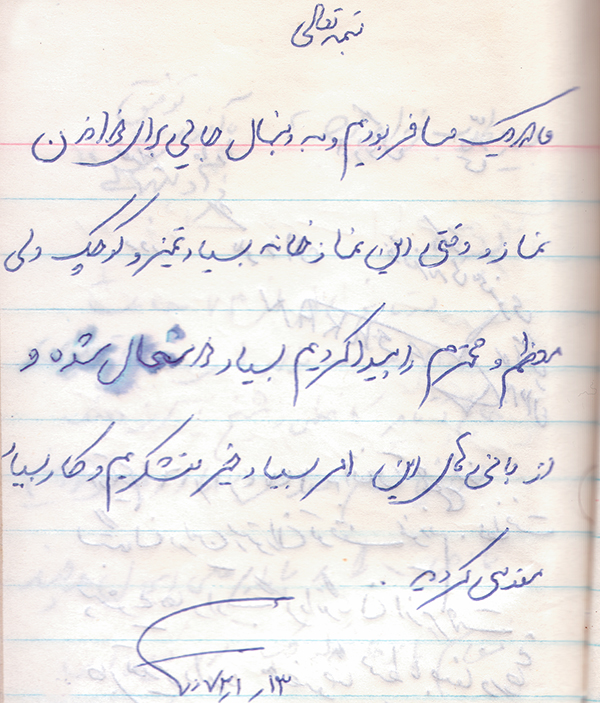 بسمه تعالی
ما که یک مسافر بودیم و به دنبال جایی برای خواندن
نماز و وقتی این نمازخانه بسیار تمیز و کوچک ولی
معظم و محترم را پیدا کردیم بسیار خوشحال شده و
از بانی‌های این امر بسیار خیر متشکریم و کار بسیار
مقدسی کردید.